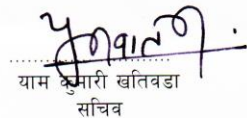 याम कुमारी खतिवडा
सचिव